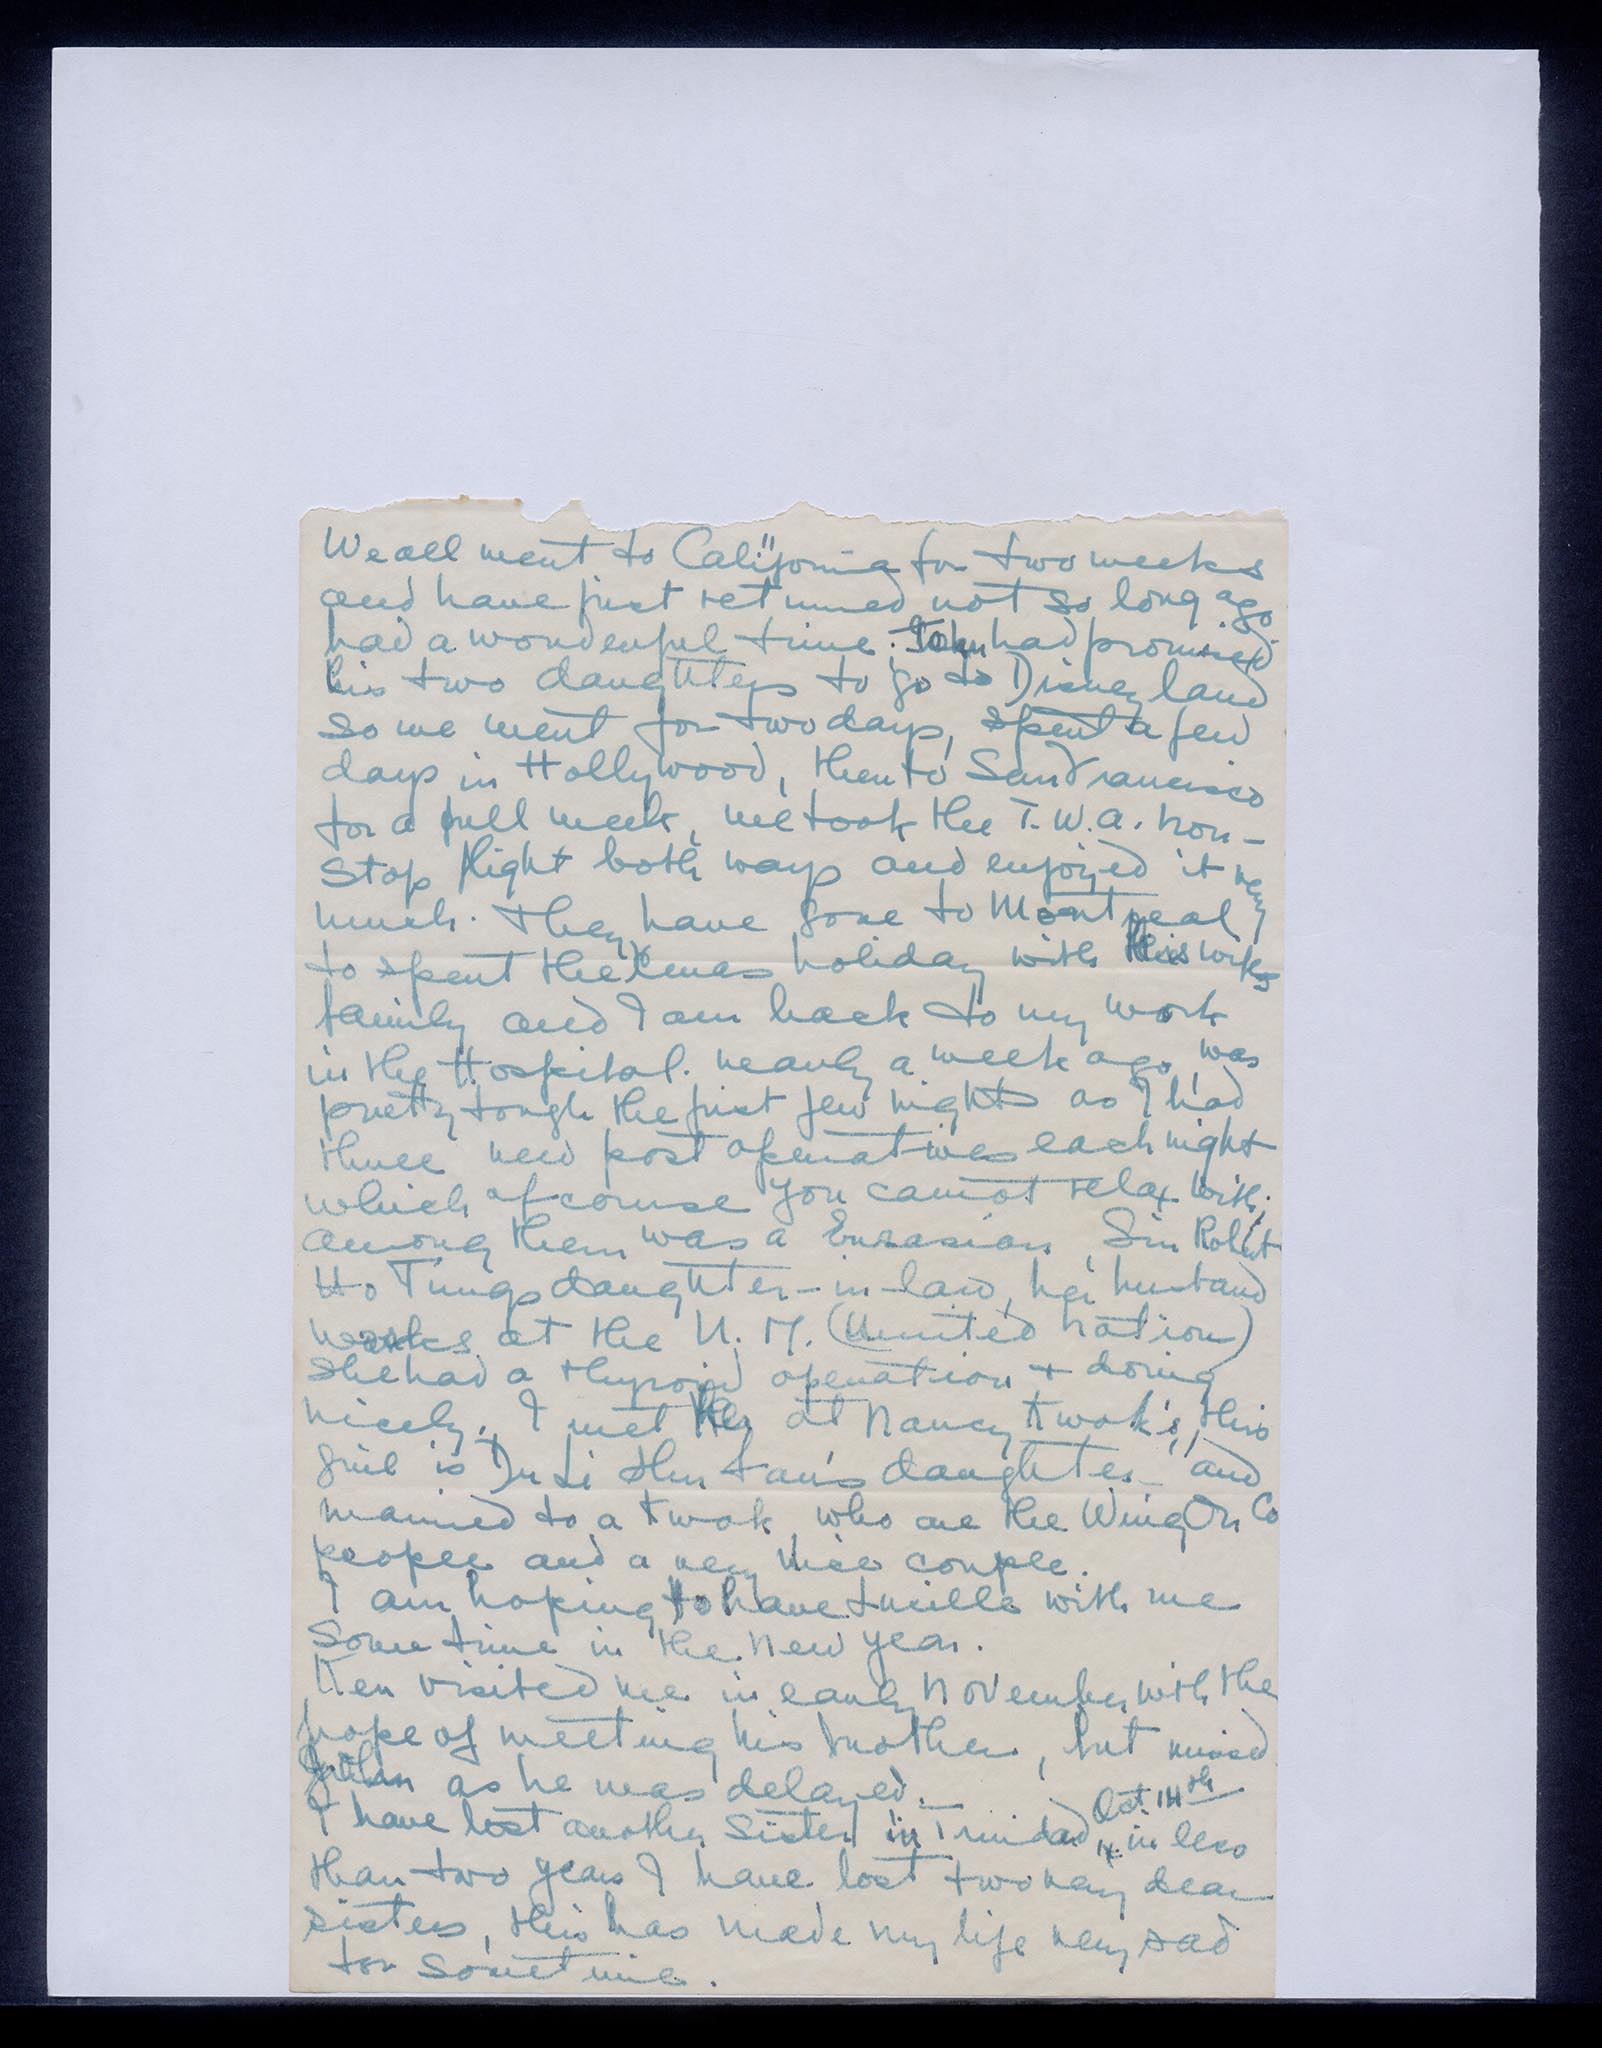 We all went to California for two weeks
and have just returned not so long ago.
had a wonderful time. John had promised
his two daughters to go to Disneyland
so we went for two days, spent a few
days in Hollywood, then to San Francisco
for a full week, we took the T.W.A. non-
stop flight both ways and enjoyed it very
much. They have gone to Montreal
to spent the Xmas holiday with his wifes
family and I am back to my work
in the Hospital. nearly a week ago, was
pretty tough the first few nights as I had
three new post operatives each night
which of course you cannot relax with,
among them was a Eurasian, Sir Robert
Ho Tungs daughter-in-law, her husband
works at the U.N. (United Nation)
she had a thyroid operation & doing
nicely., I met her at Nancy Kwok's, this
girl is Dr Li daughter- and
married to a Kwok, who are the Wing On Co
people and a very nice couple.
I am hoping to have Lucille with me
some time in the New Year.
Ken visited me in early November with the
hope of meeting his brother, but missed
John as he was delayed.
I have lost another Sister in Trinidad Oct. 14th x in less
than two years I have lost two very dear
sisters, this has made my life very sad
for sometime.